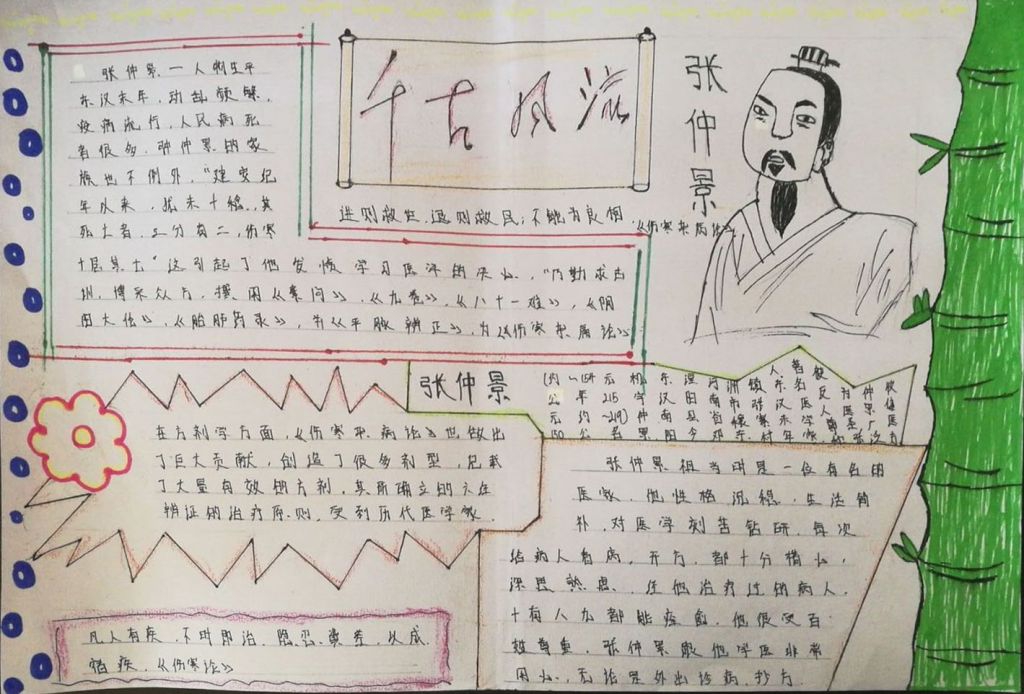 张仲景一人的生平
东汉末年，动乱频繁，
疫病流行，人民病死
者很多，张仲景的家
族也不例外，“建安纪
年以来，犹未十稔，其
死亡者，三分有二，伤寒
十居其七”这引起了他发愤学习医术的决心，“乃勤求古
训，博采众方，撰用《素问》，《九卷》，《八十一难》，《阴
阳大伦》，《胎胪药录》，并《平脉辨证》，为《伤寒杂病论》
千古风流
进则救世，退则救民；不能为良相
《伤寒杂病论》
张仲景
张仲景
在方剂学方面，《伤寒杂病论》也做出
了巨大贡献，创造了很多剂型，记载
了大量有效的方剂，其所确立的六经
辨证的治疗原则，受到历代医学家
凡人有疾，不时即治，隐忍冀差，以成
痼疾，《伤寒论》
张仲景祖当时是一位有名的
医家，他性格沉稳，生活简
朴，对医学刻苦钻研，每次
给病人看病，开方，都十分精心，
深思熟虑，经他治疗过的病人，
十有八九都能痊愈，他很受百
姓尊重，张仲景跟他学医非常
用心，无论是外出诊病，抄方